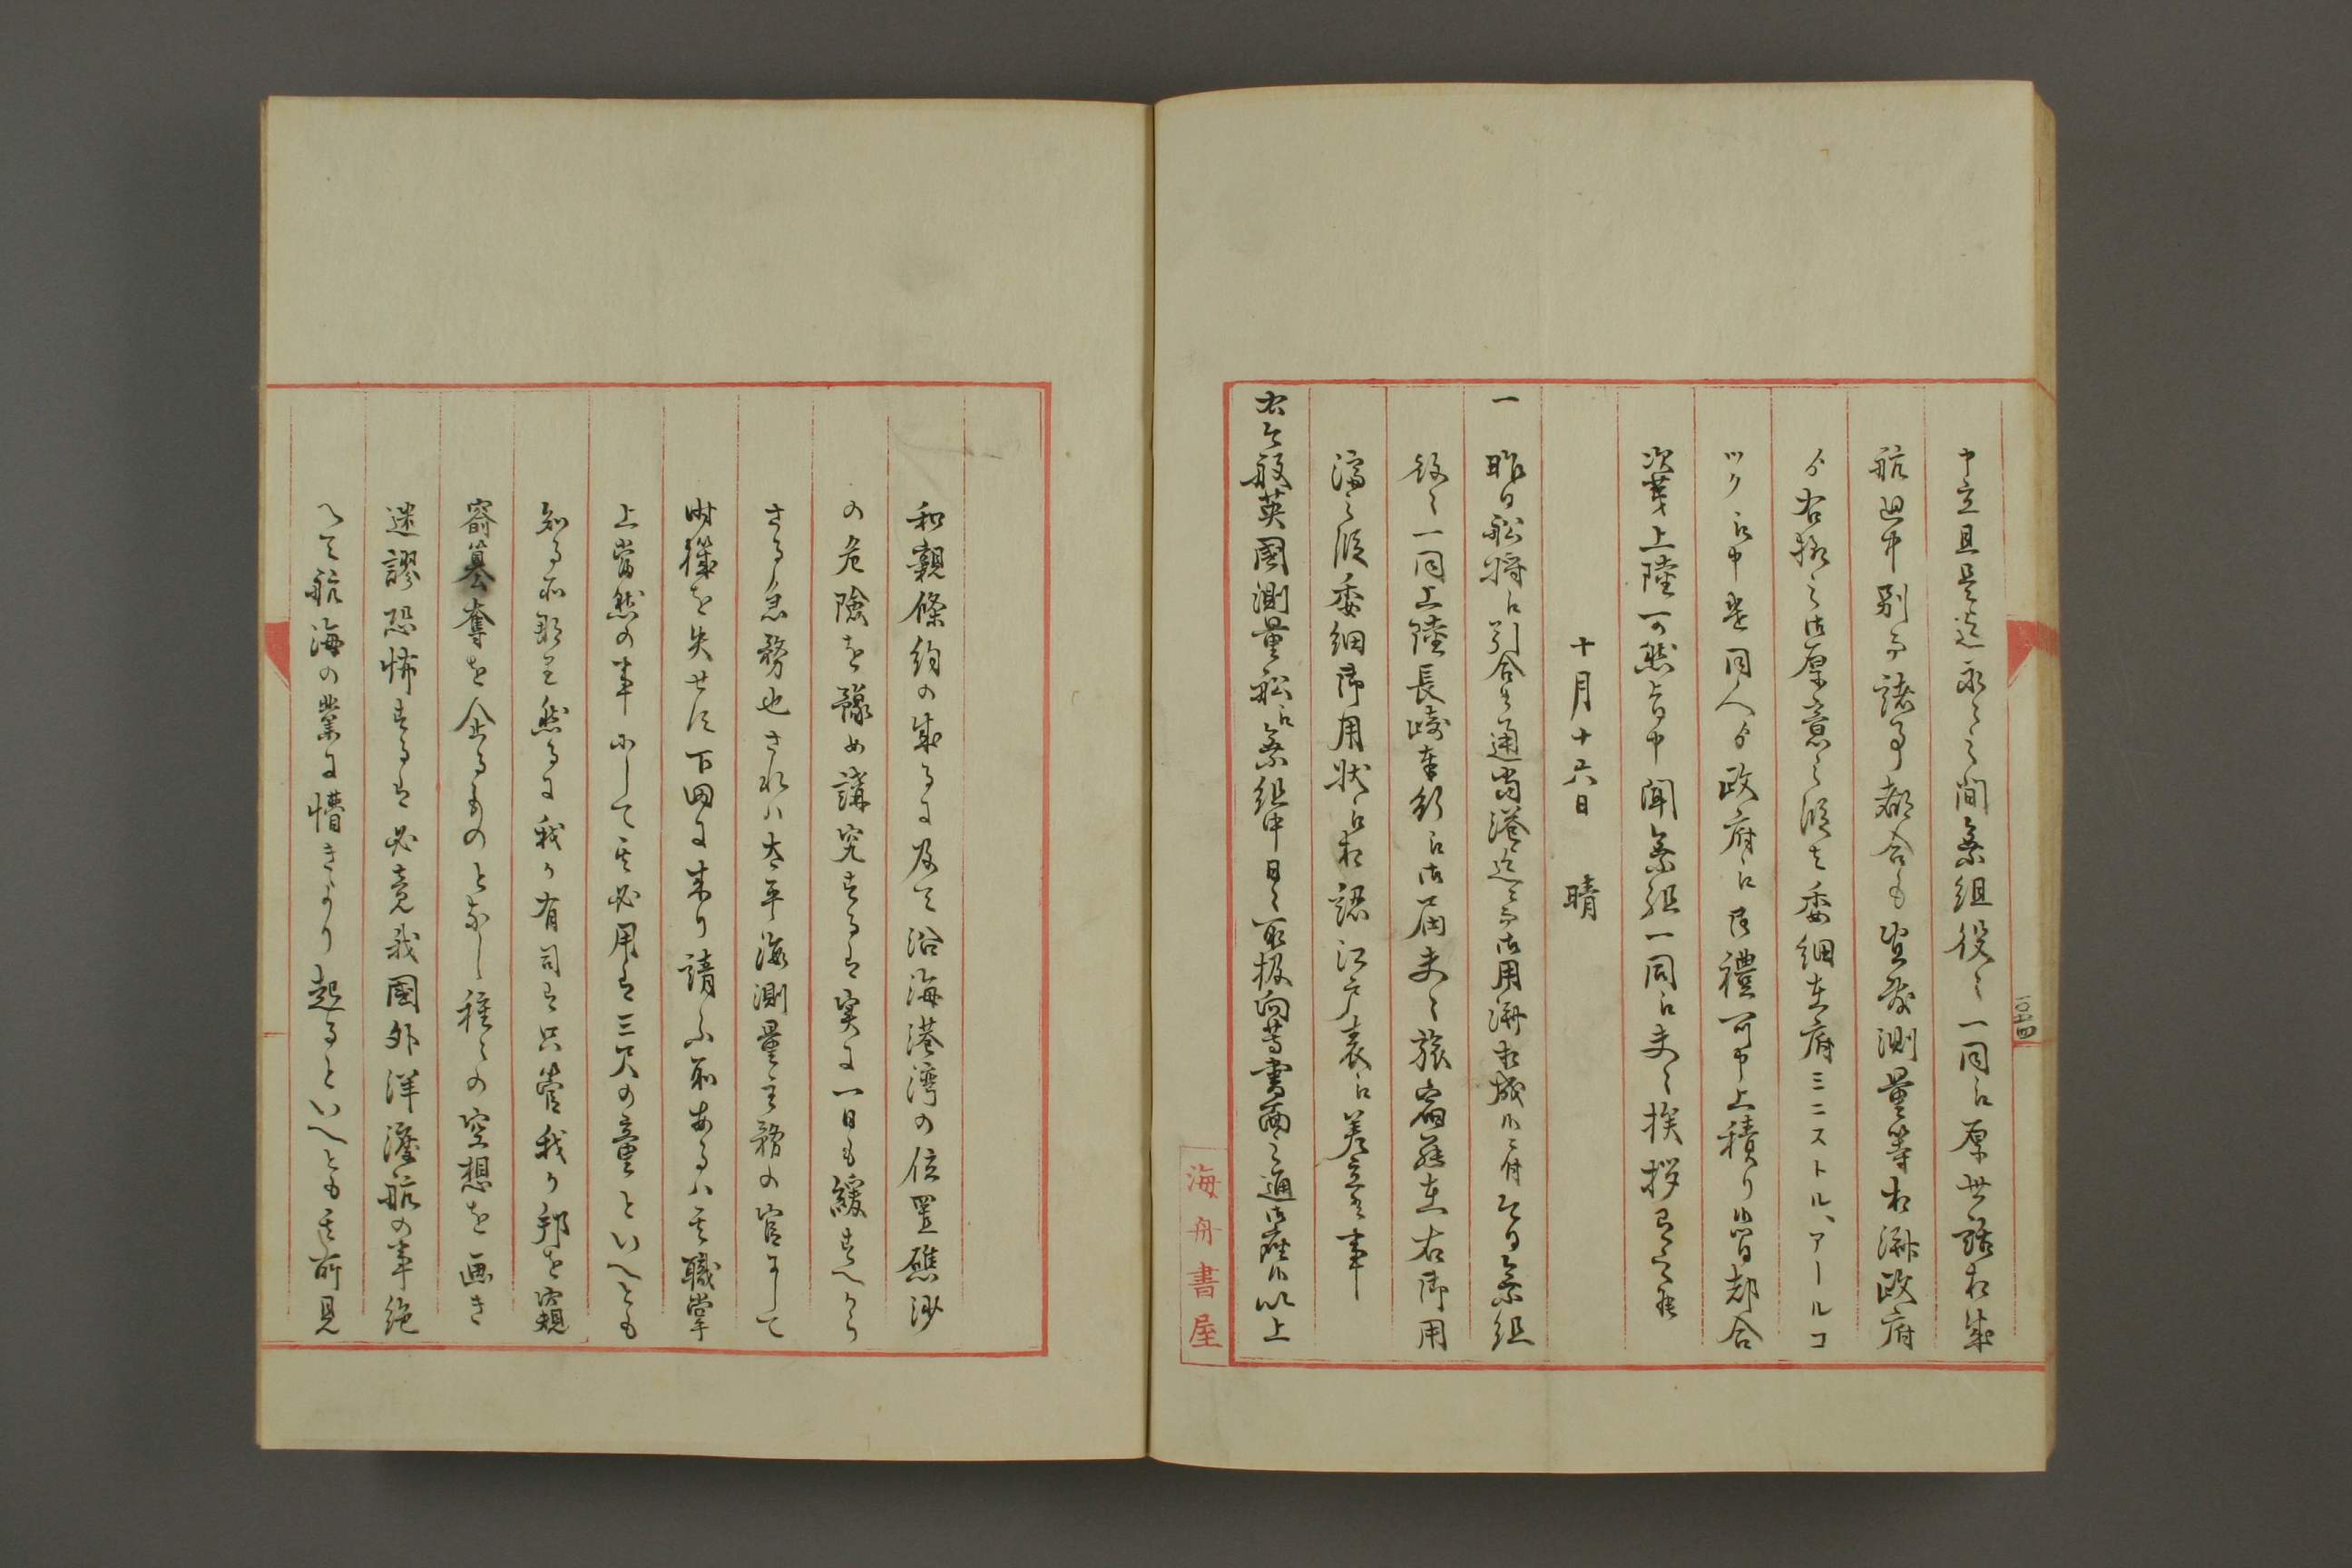 中立且是迄永々之間乗組役々一同江厚世話相成
航迴中別而諸事都合も宜敷測量等相済政府
ゟ右様之御厚意之段者委細在府ミニストル、アールコ
ツク江申遣同人ゟ政府江御禮可申上積り候間都合
次第上陸可然旨申聞乗組一同江夫々挨拶有之候
十月十六日 晴
一 昨日船将江引合候通当港迄ニ而御用済相成候ニ付今日乗組
役々一同上陸長崎奉行江御届夫々旅宿罷在右御用
済之段委細御用状江相認江戸表江差立候事
右今般英國測量船江乗組中日々取扱向等書面之通御座候以上
海舟書屋
和親條約の成るに及て沿海港湾の位置礁沙
の危險を豫め講究するは実に一日も緩すへから
さる急務也されハ太平海測量主務の官にして
時機を失せす下田に来り請ふ所あるハ其職掌
上當然の事にして其必用は三尺の童といへとも
知る所都て然るに我か有司は只管我か邦を窺
窬簒奪を企るものとなし種々の空想を画き
迷謬恐怖するは必竟我國外洋渡航の事絶
へて航海の業に懵きより起るといへとも其所見